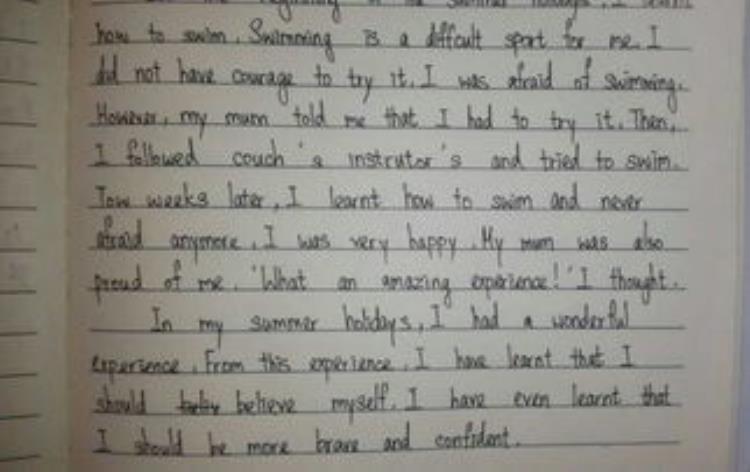 beginning of the summer holidays, I learnt
how to swim. Swimming is a difficult sport for me. I
did not have courage to try it. I was afraid of swimming.
However, my mum told me that I had to try it. Then,
I followed couch's instrutor's and tried to swim.
Tow weeks later, I learnt how to swim and never
afraid anymore. I was very happy. My mum was also
proud of me. 'What an amazing experience!' I thought.
In my summer holidays, I had a wonderful
experience. From this experience, I have learnt that I
should believe myself. I have even learnt that
I should be more brave and confident.